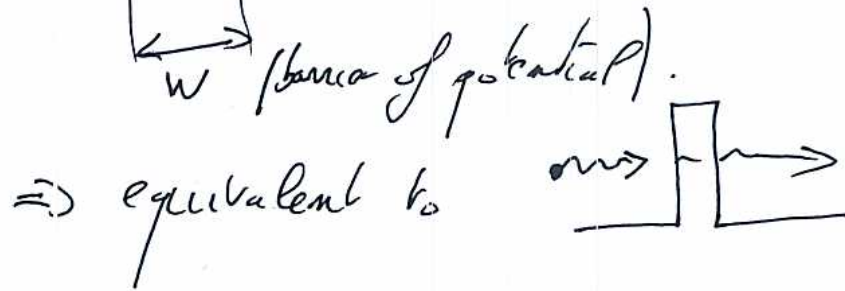 W (barrier of potential).
=> equivalent to